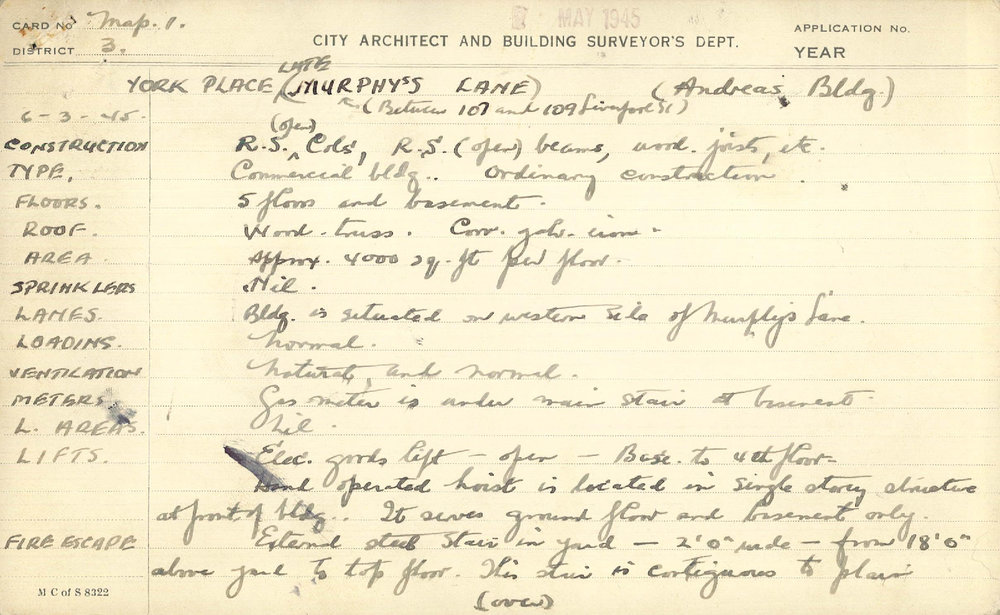 CARD No Map. 1.
MAY 1945
APPLICATION No.
DISTRICT 3.
CITY ARCHITECT AND BUILDING SURVEYOR'S DEPT.
YEAR
LATE
YORK PLACE (MURPHY'S LANE) (Andreas Bldg.)
6-3-45. (Between 107 and 109 Liverpool St)
(open)
CONSTRUCTION R.S. Cols, R.S. (open) beams, wood. joists, etc.
TYPE. Commercial bldg.. Ordinary construction.
FLOORS. 5 floors and basement.
ROOF. Wood-truss. Corr. galv. iron.
AREA Approx. 4000 sq. ft per floor.
SPRINKLERS Nil.
LANES. Bldg. is situated on western side of Murphy's Lane.
LOADING. Normal.
VENTILATION Natural, and normal.
METERS. Gas meter is under main stair at basement.
L. AREAS. Nil.
LIFTS. Elec. goods lift - open - Base. to 4th floor.
Hand operated hoist is located in single storey structure
at front of bldg.. It serves ground floor and basement only.
FIRE ESCAPE External steel stair in yard - 2'0" wide - from 18'0"
above yard to top floor. This stair is contiguous to plain
M C of S 8322
(over)